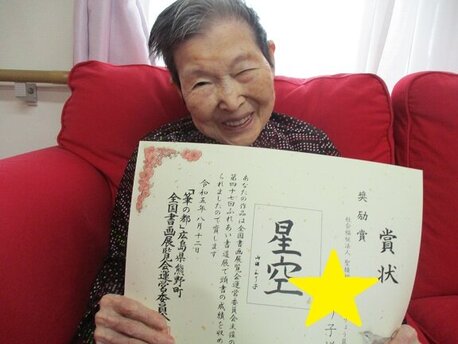 賞状
奨励賞
社会福祉法人
子
星空
あなたの作品は全国書画展覧会運営委員会主催の
第四十七回ふれあい書道展で頭書の成績を収め
られましたので賞します
令和五年八月十二日
「筆の都」広島県熊野町
全国書画展覧会運営委員会